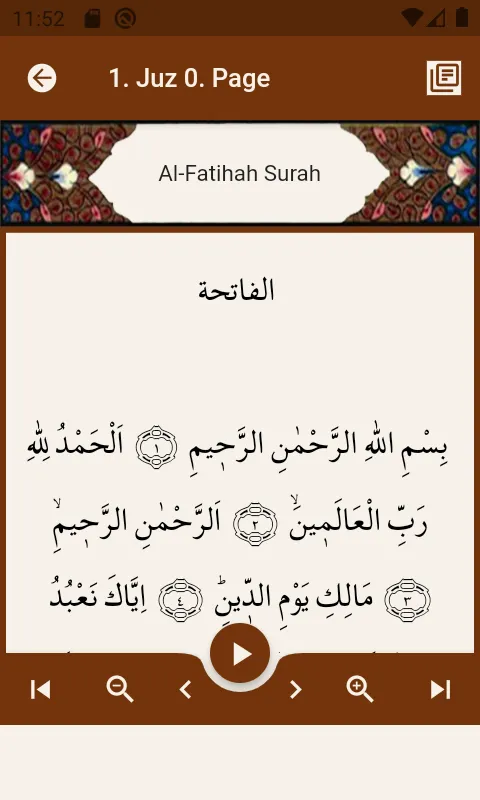 11:52
1. Juz 0. Page
Al-Fatihah Surah
الفاتحة
بِسْمِ اللّٰهِ الرَّحْمٰنِ الرَّح۪يمِ ١ اَلْحَمْدُ لِلّٰهِ
رَبِّ الْعَالَم۪ينَۙ ٢ اَلرَّحْمٰنِ الرَّح۪يمِۙ
٣ مَالِكِ يَوْمِ الدّ۪ينِۜ ٤ اِيَّاكَ نَعْبُدُ